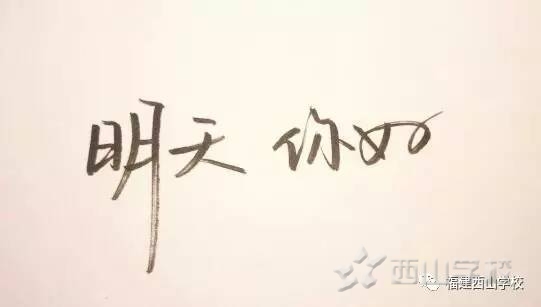 明天 你好
西山学校
福建西山学校